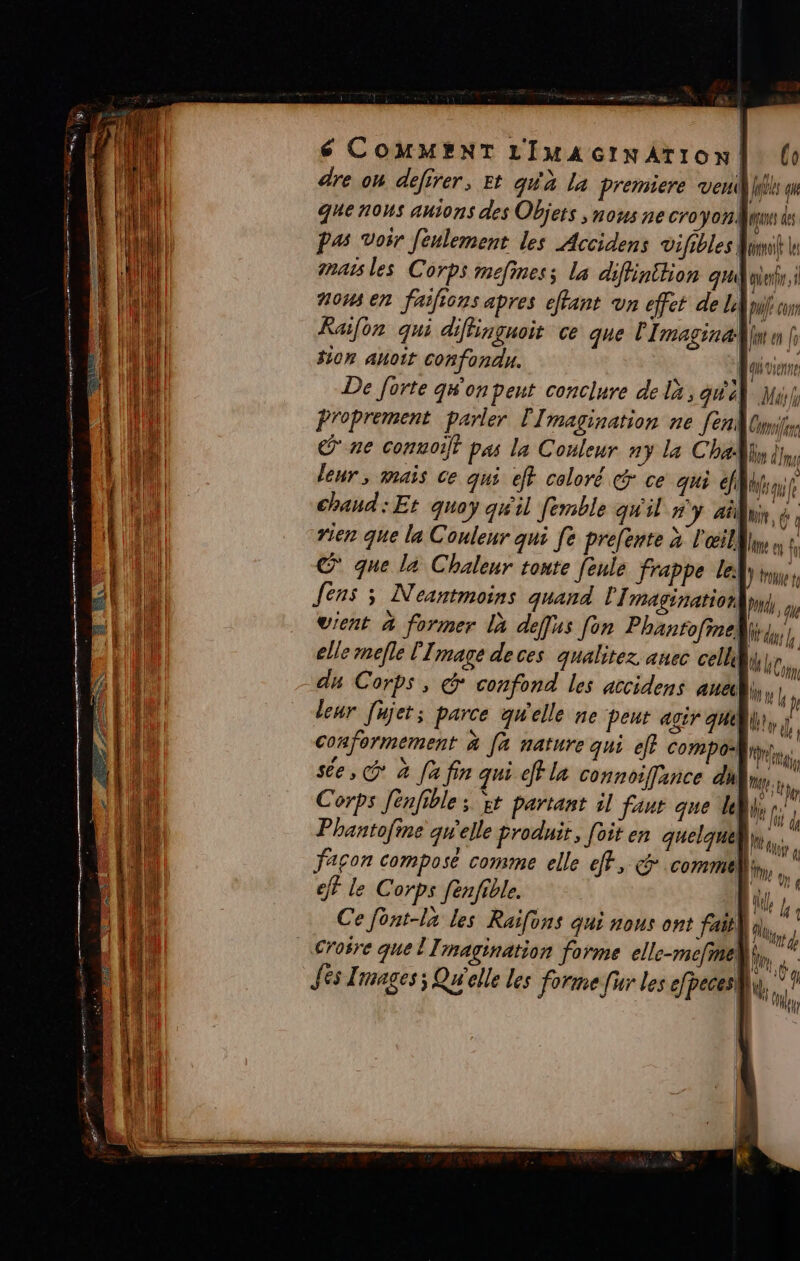 6 COMMENT L'IMAGINATION
dre ou desirer, Et qu'à la premiere veuë
que nous auions des Objets, nous ne croyons
pas voir seulement les Accidens visibles
mais les Corps mesmes; la distinction que
nous en faisions apres estant vn effet de la
Raison qui distinguoit ce que l'Imagina-
tion auoit confondu.
De sorte qu'on peut conclure de là, qu'à
proprement parler l'Imagination ne sent
& ne connoist pas la Couleur ny la Cha-
leur, mais ce qui est coloré & ce qui est
chaud: Et quoy qu'il semble qu'il n'y ait
rien que la Couleur qui se presente à l'œil
& que la Chaleur toute seule frappe les
sens; Neantmoins quand l'Imagination
vient à former là dessus son Phantosme
elle mesle l'Image de ces qualitez auec celle
du Corps, & confond les accidens auec
leur sujet; parce qu'elle ne peut agir que
conformement à sa nature qui est compo-
sée, & à sa fin qui est la connoissance du
Corps sensible; Et partant il faut que le
Phantosme qu'elle produit, soit en quelque
façon composé comme elle est, & comme
est le Corps sensible.
Ce sont-là les Raisons qui nous ont fait
croire que l'Imagination forme elle-mesme
ses Images; Qu'elle les forme sur les especes